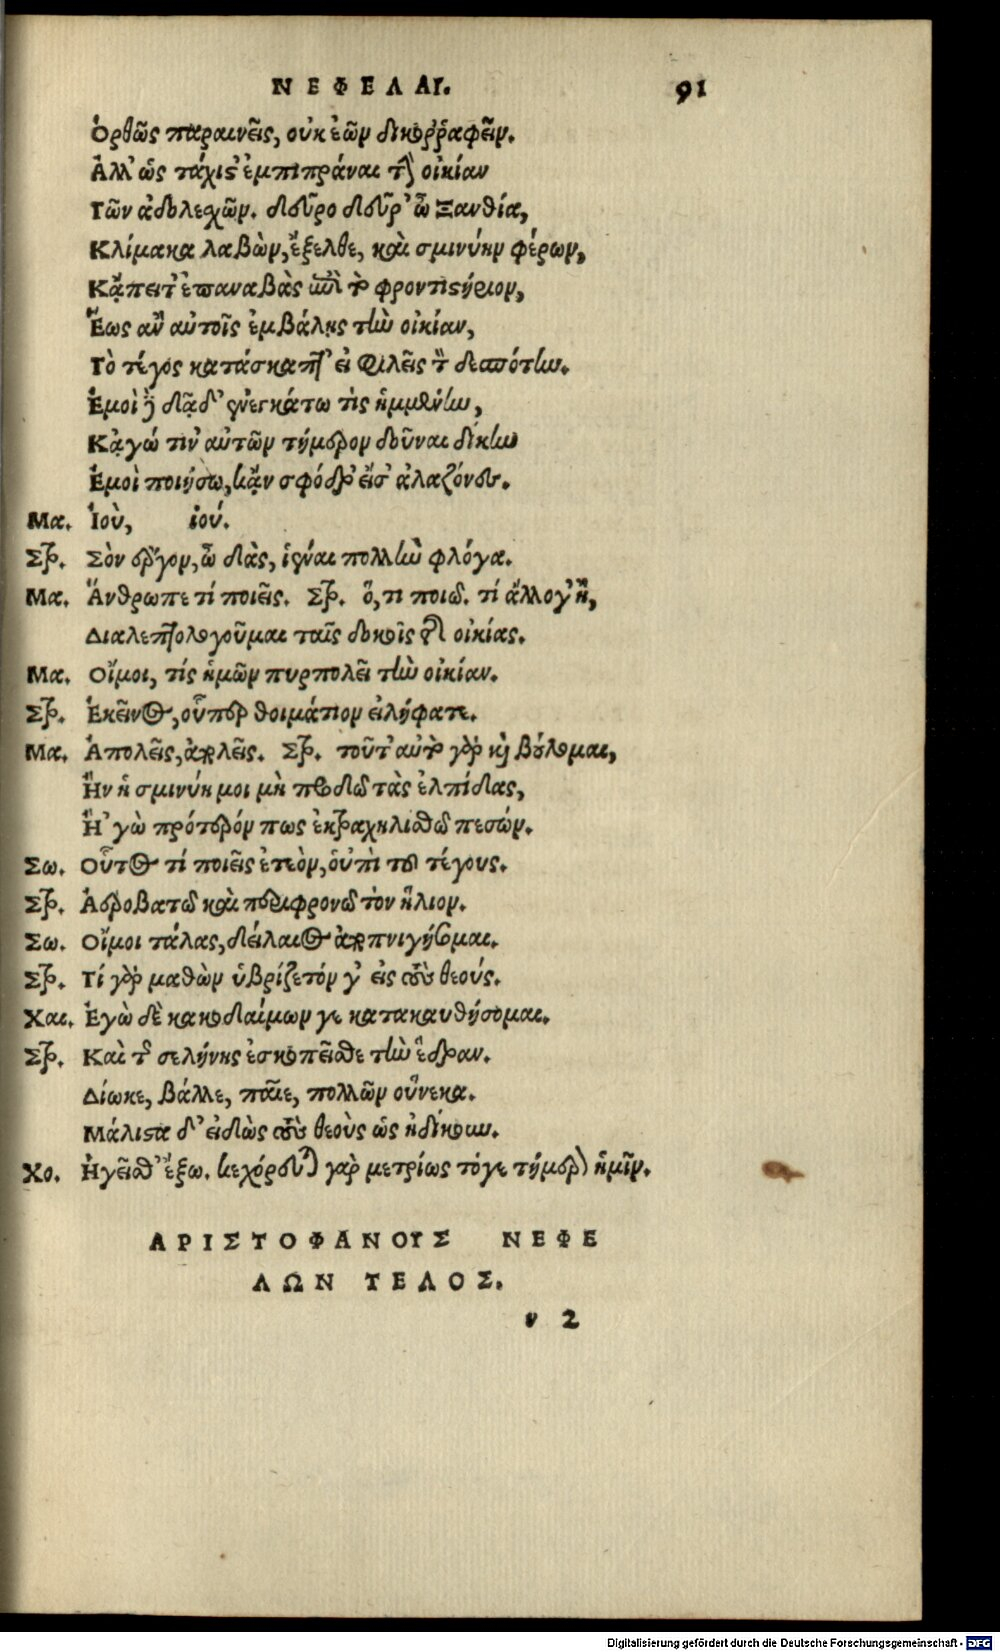 ΝΕΦΕΛΑΙ. 91
Ὀρθῶς παραινεῖς, οὐκ ἐῶν δικορῤαφεῖν.
Ἀλλ' ὡς τάχιστ' ἐμπιπράναι τὴν οἰκίαν
Τῶν ἀδολεσχῶν. δεῦρο δεῦρ' ὦ Ξανθία,
Κλίμακα λαβὼν, ἔξελθε, καὶ σμινύην φέρων,
Κᾄπειτ' ἐπαναβὰς ἐπὶ τὸ φροντιστήριον,
Ἕως ἂν αὐτοῖς ἐμβάλῃς τὴν οἰκίαν,
Τὸ τέγος κατάσκαπτ' εἰ φιλεῖς τὸν δεσπότην.
Ἐμοὶ δὲ δᾷδ' ἐνεγκάτω τὶς ἡμμένην,
Κᾀγώ τιν' αὐτῶν τήμερον δοῦναι δίκην
Ἐμοὶ ποιήσω, κᾄν σφόδρ' εἴσ' ἀλαζόνες.
Μα. Ἰοὺ, ἰού.
Στρ. Σὸν ἔργον, ὦ δᾲς, ἱέναι πολλὴν φλόγα.
Μα. Ἄνθρωπε τί ποιεῖς. Στρ. ὅ,τι ποιῶ. τί ἄλλο γ' ἢ,
Διαλεπτολογοῦμαι ταῖς δοκοῖς τῆς οἰκίας.
Μα. Οἴμοι, τίς ἡμῶν πυρπολεῖ τὴν οἰκίαν.
Στρ. Ἐκεῖνος, οὗπερ θοιμάτιον εἰλήφατε.
Μα. Ἀπολεῖς, ἀπολεῖς. Στρ. τοῦτ' αὐτὸ γὰρ καὶ βούλομαι,
Ἢν ἡ σμινύη μοι μὴ προδῶ τὰς ἐλπίδας,
Ἢ 'γὼ πρότερόν πως ἐκτραχηλισθῶ πεσών.
Σω. Οὗτος τί ποιεῖς ἐτεὸν, οὑπὶ τοῦ τέγους.
Στρ. Ἀεροβατῶ καὶ περιφρονῶ τὸν ἥλιον.
Σω. Οἴμοι τάλας, δείλαιος ἀποπνιγήσομαι.
Στρ. Τί γὰρ μαθὼν ὑβρίζετόν γ' εἰς τοὺς θεούς.
Χαι. Ἐγὼ δὲ κακοδαίμων γε κατακαυθήσομαι.
Στρ. Καὶ τῆς σελήνης ἐσκοπεῖσθε τὴν ἕδραν.
Δίωκε, βάλλε, παῖε, πολλῶν οὕνεκα.
Μάλιστα δ' εἰδὼς τοὺς θεοὺς ὡς ἠδίκουν.
Χο. Ἡγεῖσθ' ἔξω. κεχόρευται γὰρ μετρίως τόγε τήμερον ἡμῖν.
ΑΡΙΣΤΟΦΑΝΟΥΣ ΝΕΦΕ
ΛΩΝ ΤΕΛΟΣ.
ν 2
Digitalisierung gefördert durch die Deutsche Forschungsgemeinschaft - DFG